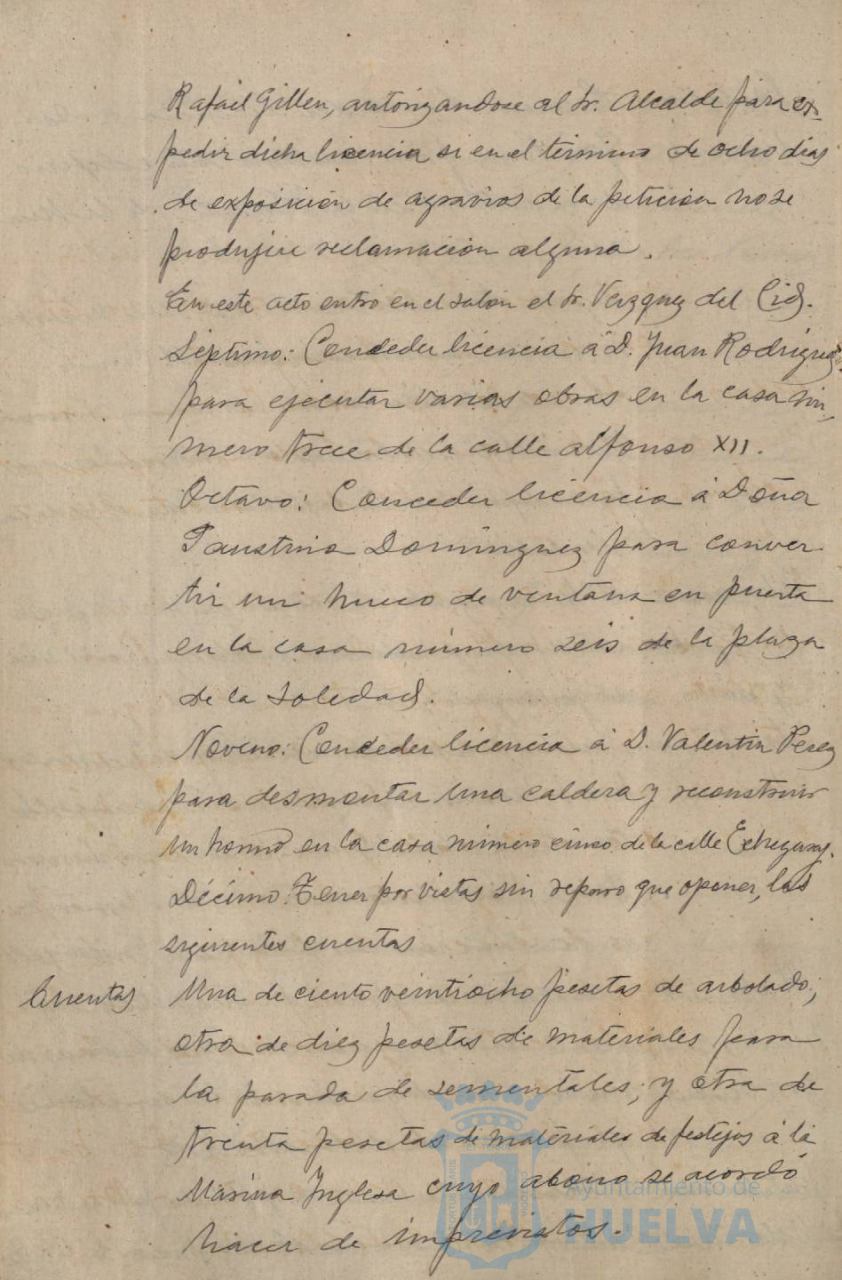 Rafael Gillen, autorizandose al Sr. Alcalde para ex-
pedir dicha licencia si en el término de ocho dias
de exposición de agravios de la peticion no se
produjere reclamación alguna.
En este acto entró en el salon el Sr. Vazquez del Cid.
Séptimo: Conceder licencia á D. Juan Rodríguez
para ejecutar varias obras en la casa nú-
mero trece de la calle Alfonso XII.
Octavo: Conceder licencia á Doña
Faustina Domínguez para conver-
tir un hueco de ventana en puerta
en la casa número seis de la plaza
de la Soledad.
Noveno: Conceder licencia á D. Valentin Perez
para desmontar una caldera y reconstruir
un horno en la casa número cinco de la calle Echegaray.
Décimo: Tener por vistas sin reparo que oponer, las
siguientes cuentas
Cuentas Una de ciento veintiocho pesetas de arbolado;
otra de diez pesetas de materiales para
la parada de sementales; y otra de
treinta pesetas de materiales de festejos á la
Marina Inglesa cuyo abono se acordó
hacer de imprevistos.
Ayuntamiento de
HUELVA